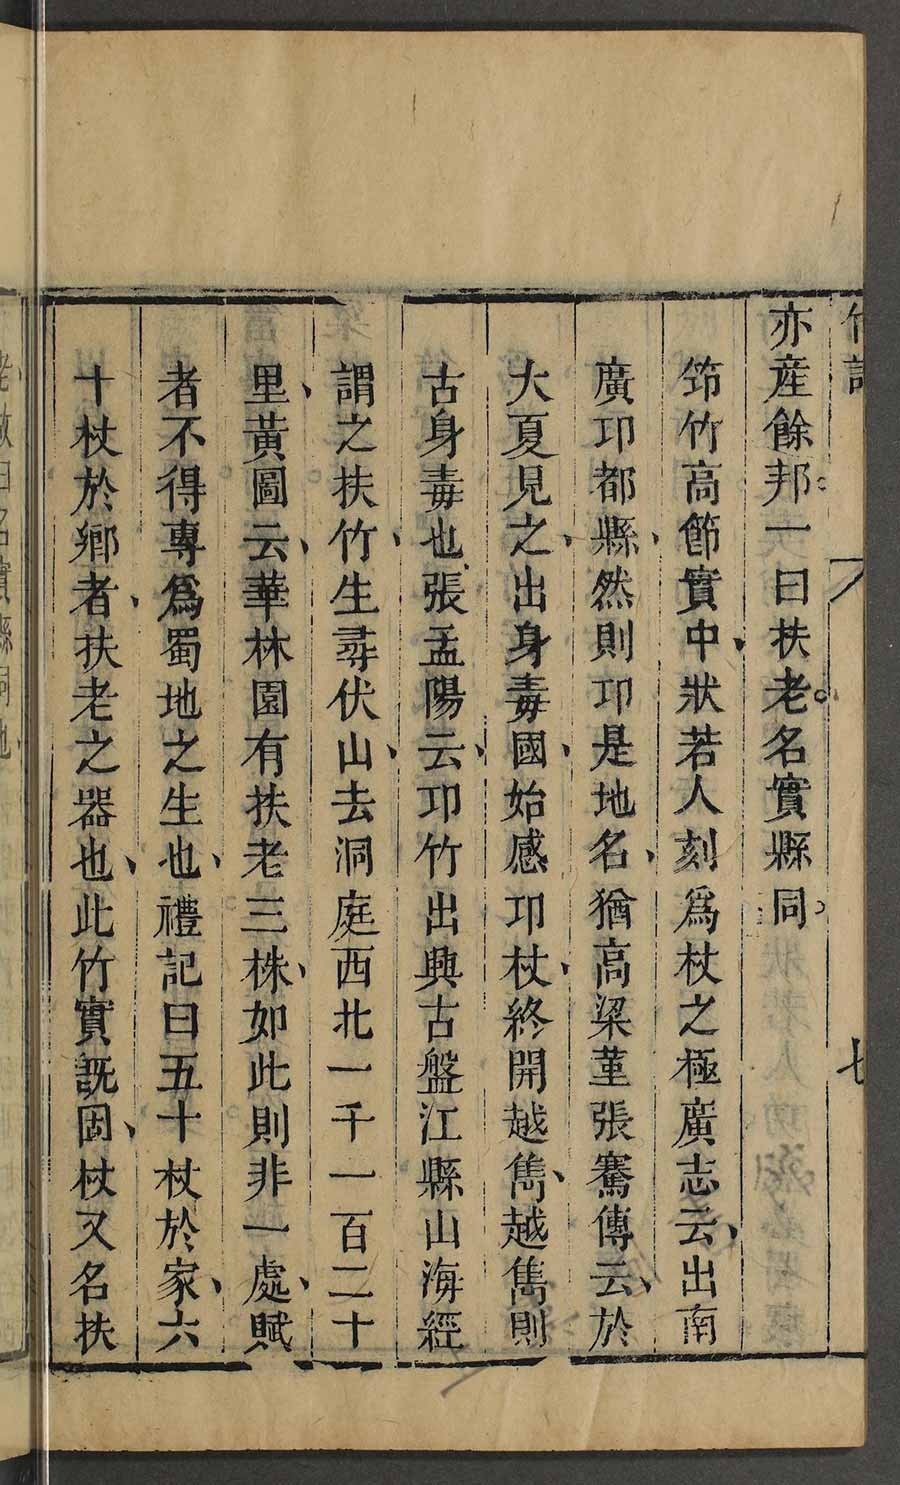 竹譜
七
亦產餘邦。一曰扶老。名實縣同。
筇竹高節實中、狀若人刻爲杖之極廣志云、出南
廣邛都縣、然則邛是地名、猶高梁堇張騫傳云、於
大夏見之、出身毒國、始感邛杖、終開越雋、越雋則
古身毒也、張孟陽云、邛竹出興古盤江縣山海經
謂之扶竹、生尋伏山、去洞庭西北一千一百二十
里、黃圖云、華林園有扶老三株、如此則非一處、賦
者不得專爲蜀地之生也、禮記曰五十杖於家、六
十杖於鄉者、扶老之器也、此竹實旣固、杖又名扶